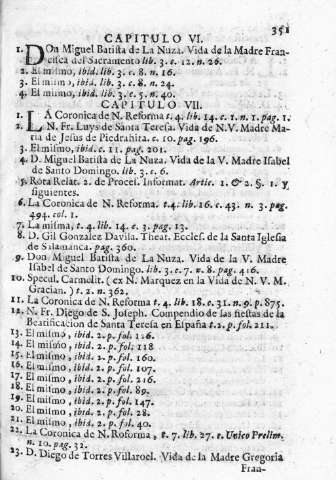 351
CAPITULO VI.
1. Don Miguel Batista de La Nuza. Vida de la Madre Fran-
cisca del Sacramento lib. 3. c. 12. n. 26.
2. El mismo, ibid. lib. 3. c. 8. n. 16.
3. El mismo, ibid. lib. 3. c. 8. n. 24.
4. El mismo, ibid. lib. 3. c. 5. n. 40.
CAPITULO VII.
1. LA Coronica de N. Reforma t. 4. lib. 14. c. 1. n. 1. pag. 1.
2. N. Fr. Luys de Santa Teresa. Vida de N. V. Madre Ma-
ria de Jesus de Piedrahita. c. 10. pag. 196.
3. El mismo, ibid. c. 11. pag. 201.
4. D. Miguel Batista de La Nuza. Vida de la V. Madre Isabel
de Santo Domingo. lib. 3. c. 6.
5. Rota Relat. 2. de Proces. Informat. Artic. 1. & 2. §. 1. y
siguientes.
6. La Coronica de N. Reforma. t. 4. lib. 16. c. 43. n. 3. pag.
494. col. 1.
7. La misma, t. 4. lib. 14. c. 3. pag. 13.
8. D. Gil Gonzalez Davila. Theat. Eccles. de la Santa Iglesia
de Salamanca. pag. 360.
9. Don Miguel Batista de La Nuza. Vida de la V. Madre
Isabel de Santo Domingo. lib. 3. c. 7. n. 8. pag. 416.
10. Specul. Carmelit. (ex N. Marquez en la Vida de N. V. M.
Gracian.) t. 2. n. 362.
11. La Coronica de N. Reforma t. 4. lib. 18. c. 31. n. 9. p. 875.
12. N. Fr. Diego de S. Joseph. Compendio de las fiestas de la
Beatificacion de Santa Teresa en España t. 2. p. fol. 211.
13. El mismo, ibid. 2. p. fol. 126.
14. El mismo, ibid. 2. p. fol. 118
15. El mismo, ibid. 2. p. fol. 160.
16. El mismo, ibid. 2. p. fol. 107.
17. El mismo, ibid. 2. p. fol. 216.
18. El mismo, ibid. 2. p. fol. 89.
19. El mismo, ibid. 2. p. fol. 147.
20. El mismo, ibid. 2. p. fol. 28.
21. El mismo, ibid. 2. p. fol. 40.
22. La Coronica de N. Roforma, t. 7. lib. 27. c. Unico Prelim.
n. 10. pag. 32.
23. D. Diego de Torres Villaroel. Vida de la Madre Gregoria
Fran-